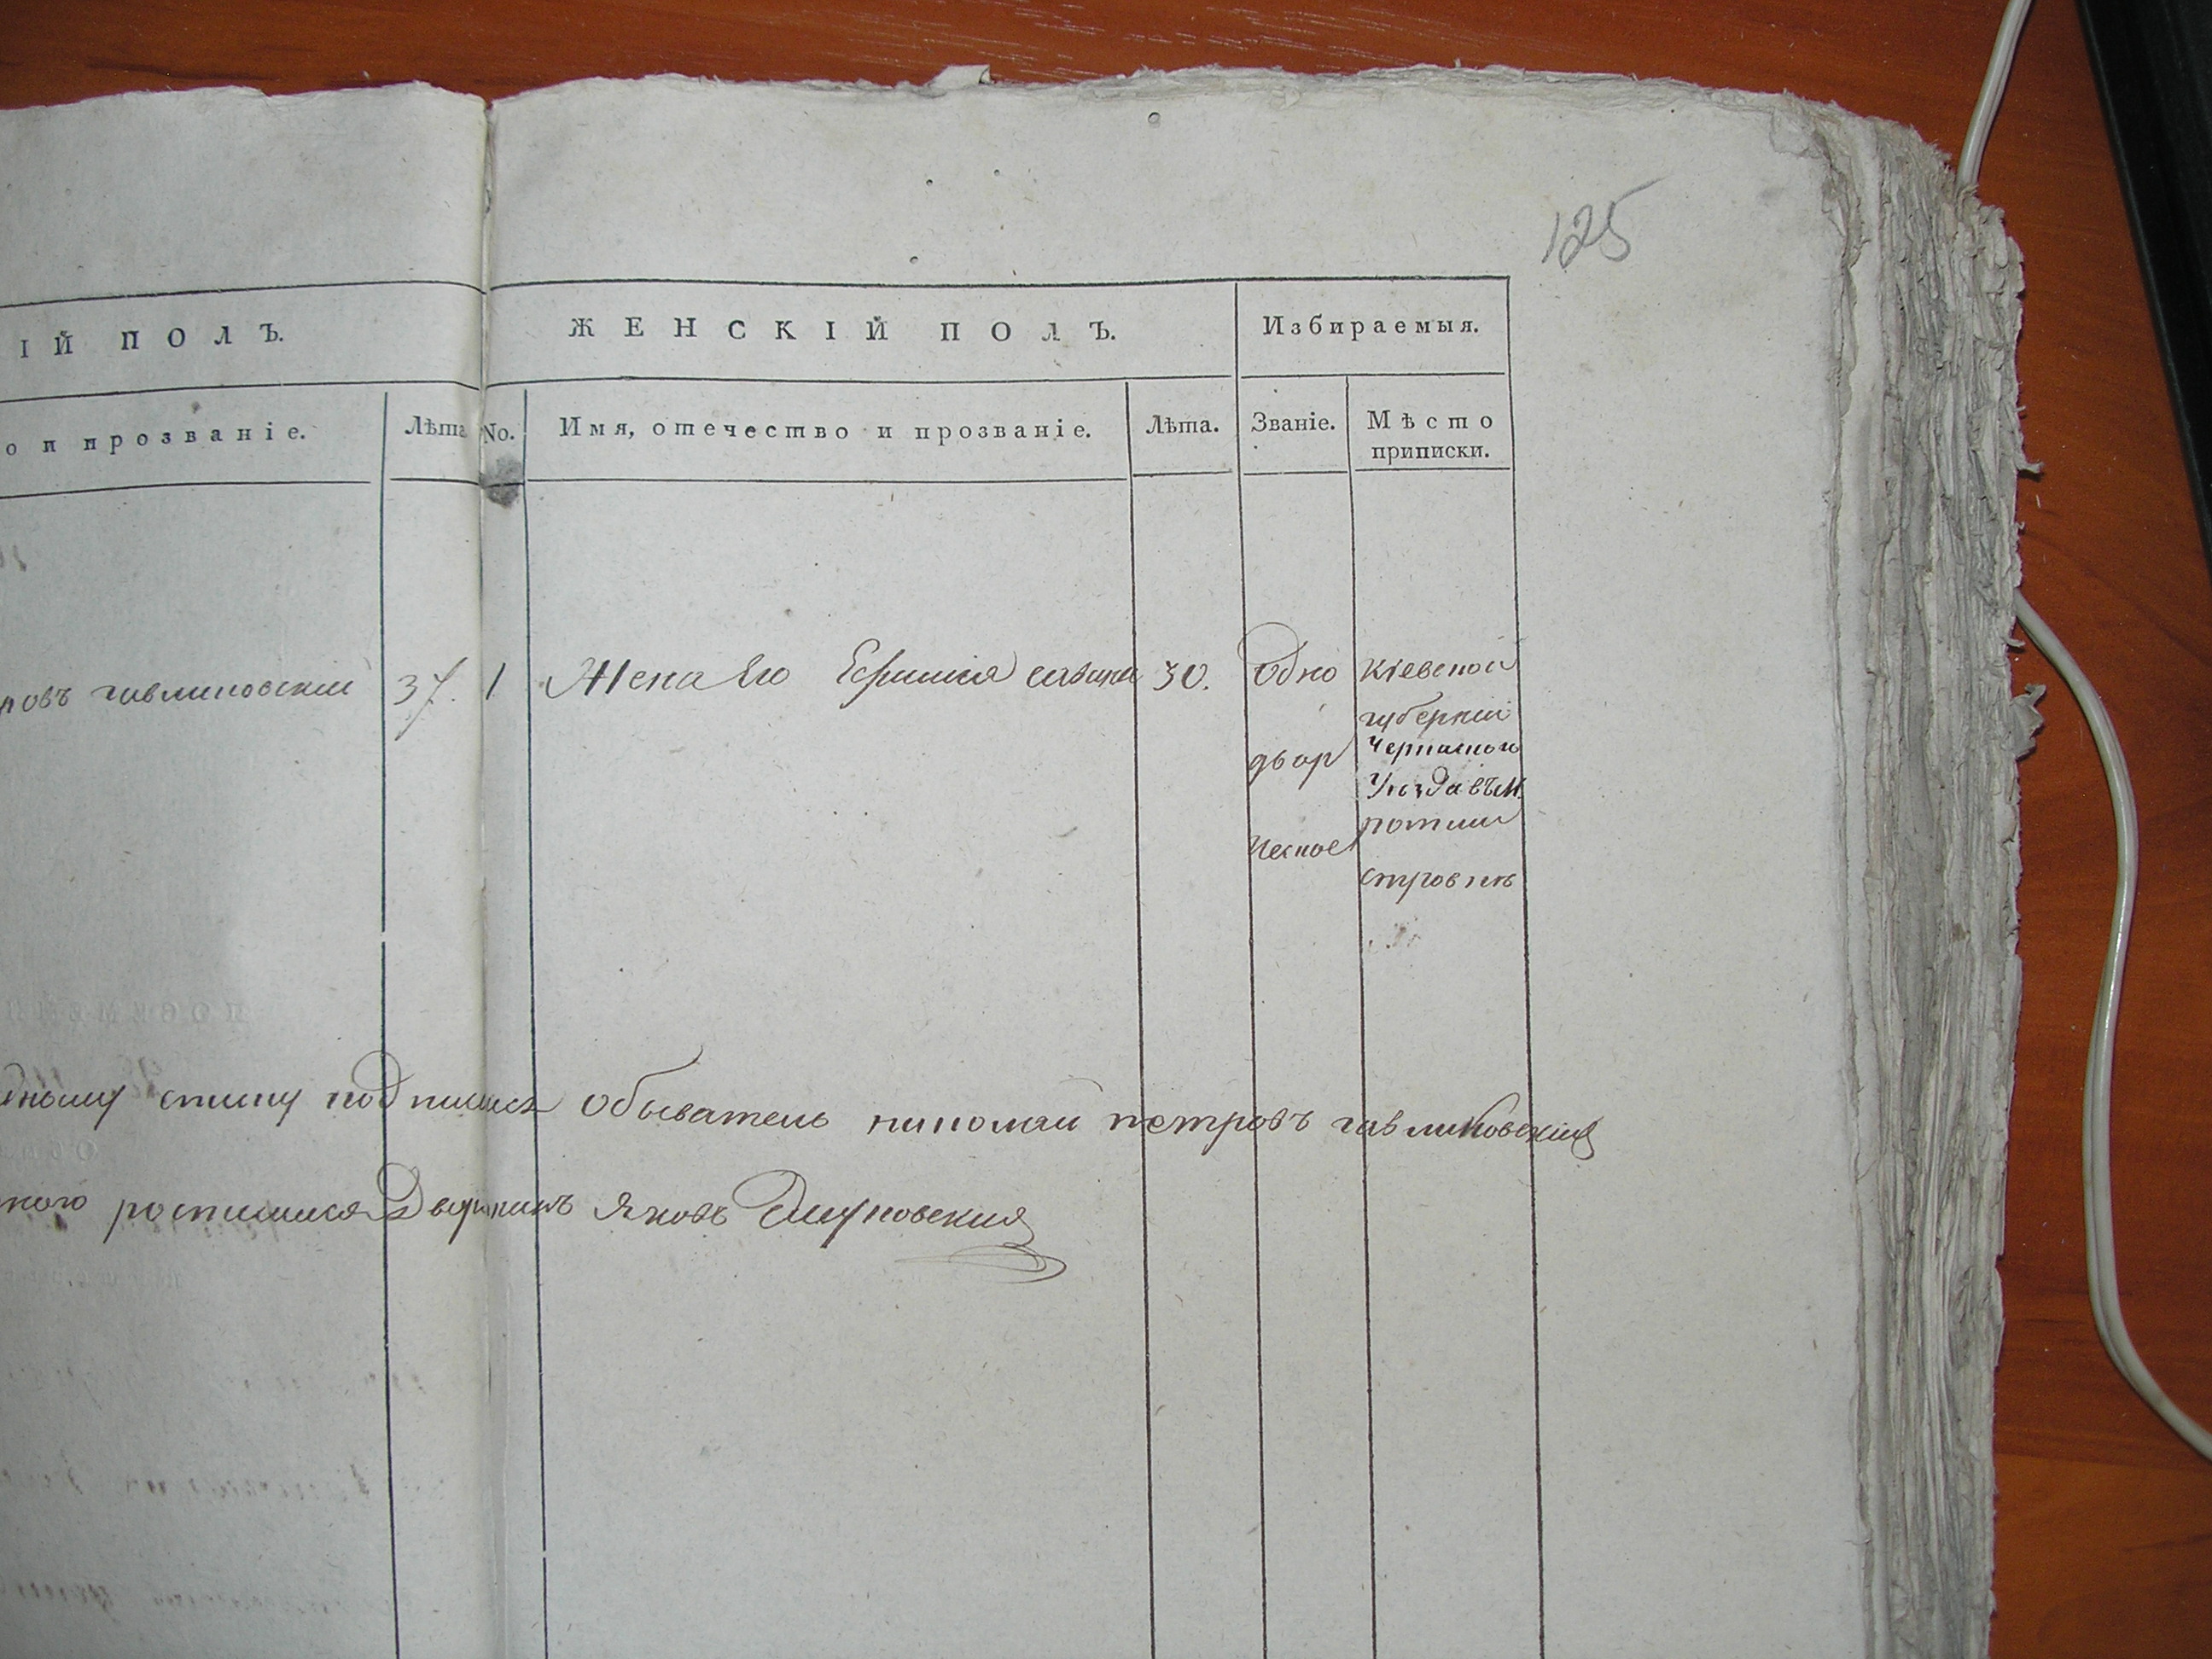 125
ІЙ ПОЛЪ.
ЖЕНСКІЙ ПОЛЪ.
Избираемыя.
о и прозваніе.
Лѣта
No.
Имя, отечество и прозваніе.
Лѣта.
Званіе.
Мѣсто
приписки.
ровъ гавликовскій 37. 1 Жена Его 30.
Одно
двор
ческое
Кіевской
губерніи
Черкаского
Уезда въ М.
ротми
стровке
дному списку подписался Обыватель николай петровъ гавликовскій
кого росписался Дворянинъ Яковъ